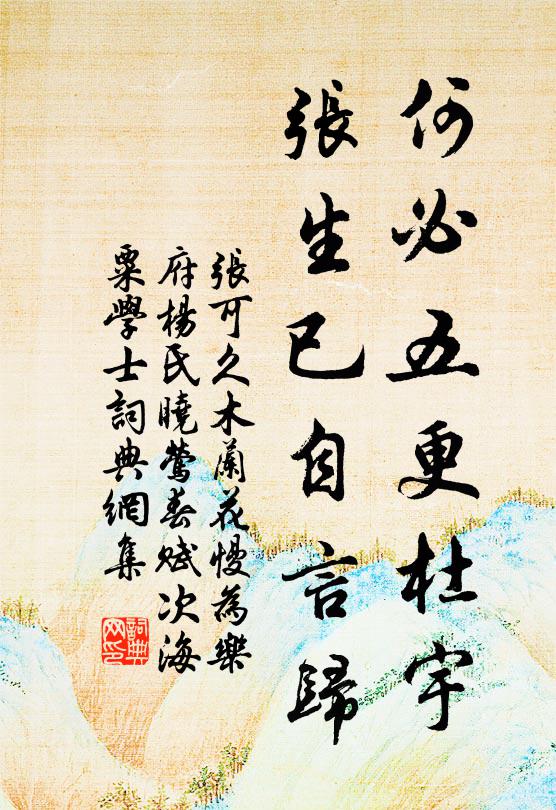 何必五更杜宇
張生已自言歸
張可久木蘭花慢為樂
府楊氏曉鶯春賦次海
粟學士詞典網集
詞典
网印